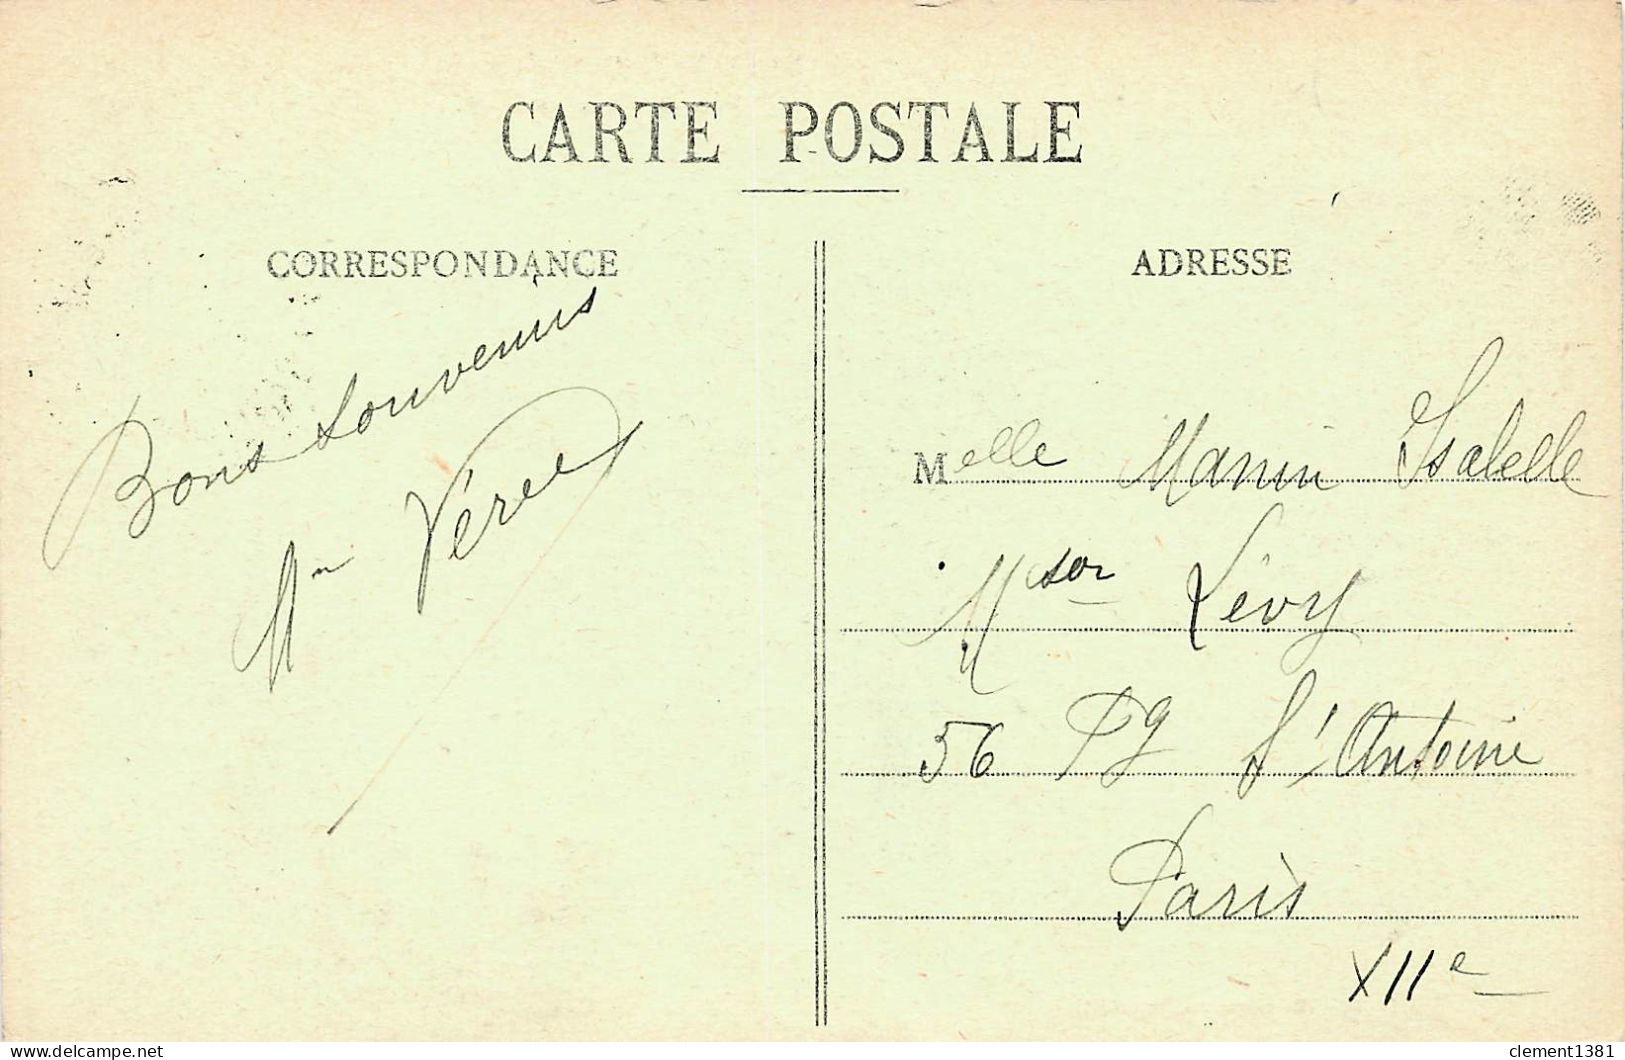 CARTE POSTALE
CORRESPONDANCE
Bons souvenirs
Mn
ADRESSE
Melle Manin Isabelle
Mson Lévy
56 Fg St Antoine
Paris
XIIe
clement1381